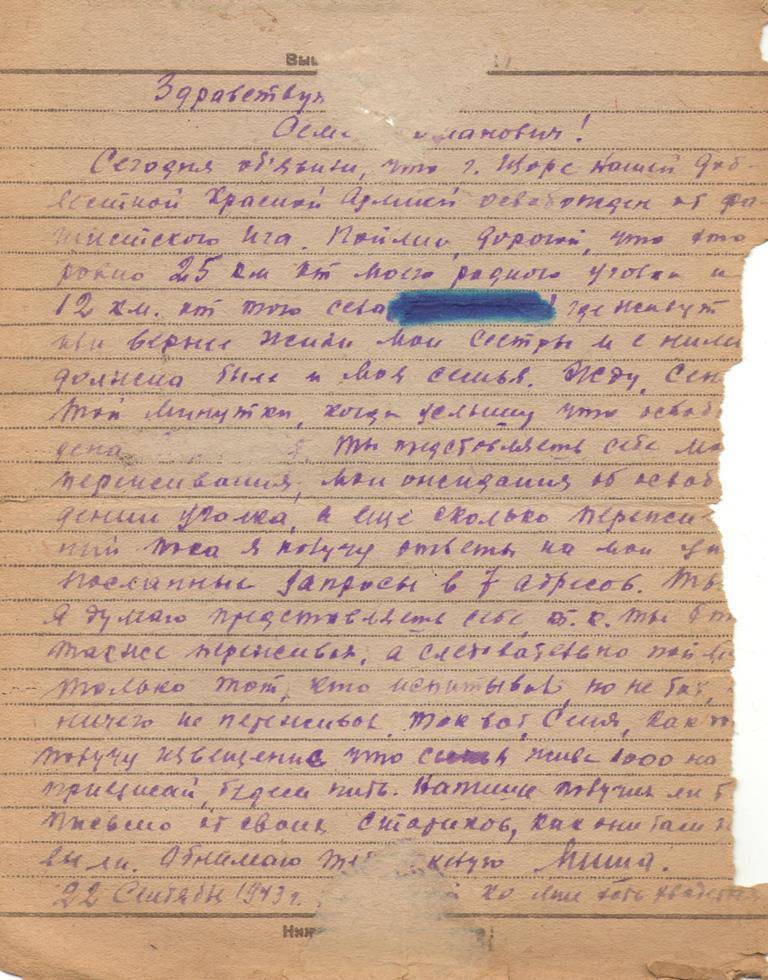 Здравствуй
Семе манович!
Сегодня об'явили, что г. Щорс нашей доб-
лестной Красной Армией освобожден от фа-
шистского ига. Пойми, дорогой, что это
ровно 25 км от моего родного уголка и
12 км. от того села где живут
или вернее жили мои сестры и с ними
должна быть и моя семья. Жду, Сен
той минутки, когда услышу что освоб
дена Ты представляешь себе мо
переживания, мои ожидания об освоб
дении уголка, а еще сколько пережи-
ний пока я получу ответы на мои
посланные запросы в 7 адресов. Ты
я думаю представляешь себе, т.к. ты
также переживал, а следовательно пойме
только тот, кто испытывал, но не тот,
ничего не переживал. Так вот, Сеня, как
получу извещение что семья жива 1000 на
приписай, будем пить. Напиши получил ли
письмо от своих стариков, как они там
выли. Обнимаю те целую Миша.
22 Сентября 1943 г. ко мне есть